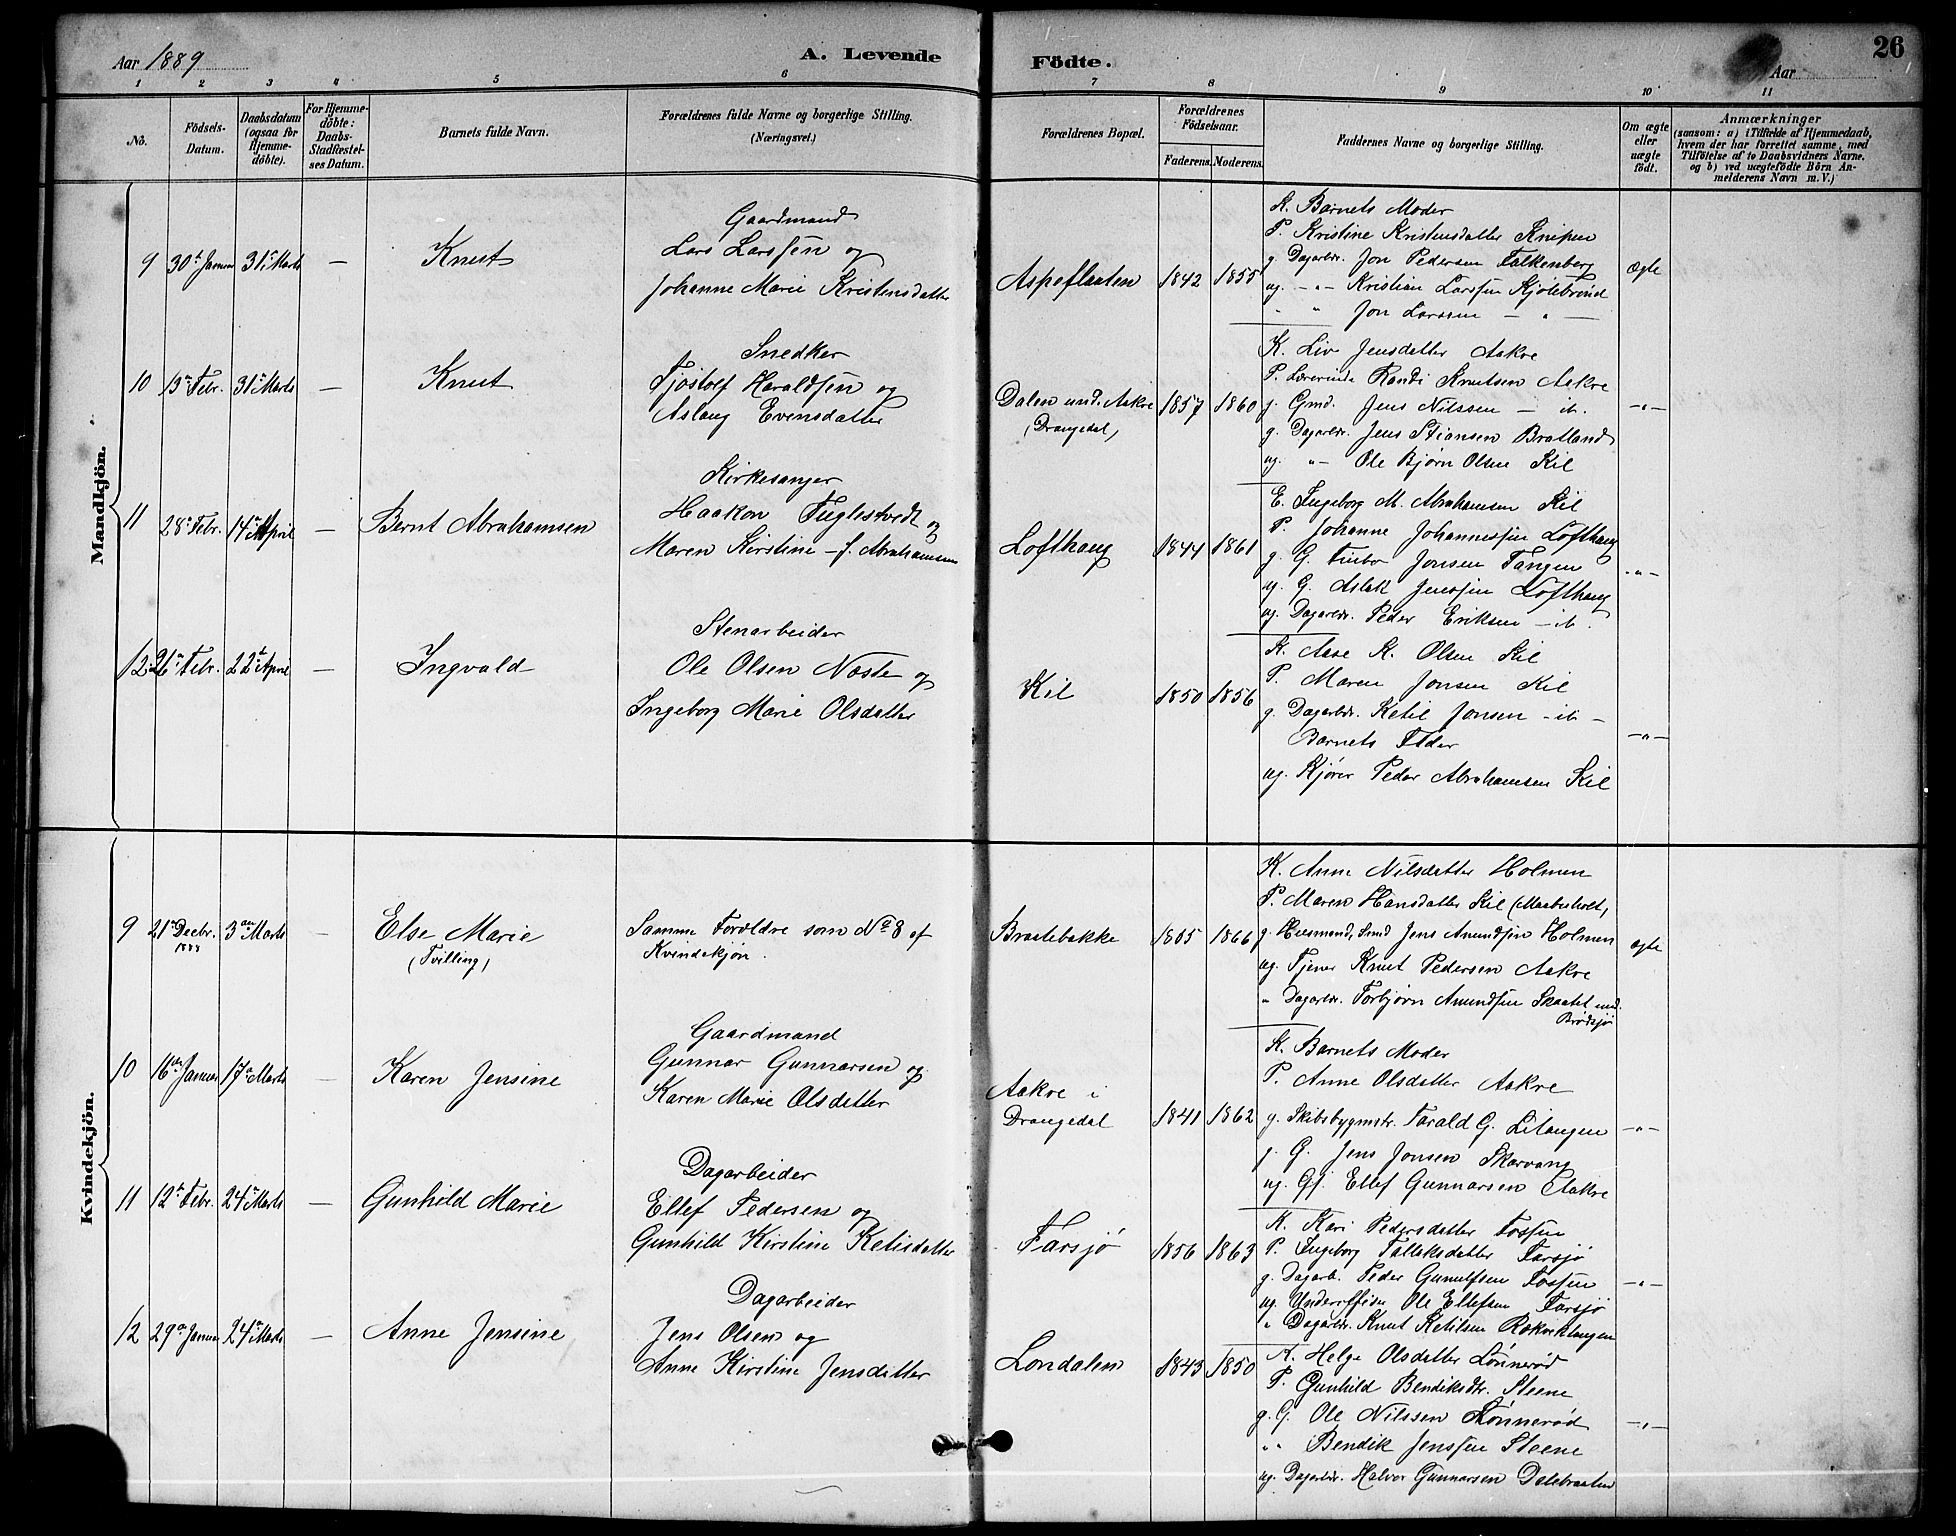 Aar 1889
A. Levende Födte.
26
Aar
1 2 3 4 5 6 7 8 9 10 11
No.
Födsels-Datum.
Daabsdatum (ogsaa for Hjemme-döbte).
For Hjemme-döbte: Daabs-Stadfæstel-ses Datum.
Barnets fulde Navn.
Forældrenes fulde Navne og borgerlige Stilling. (Næringsvei.)
Forældrenes Bopæl.
Forældrenes Födselsaar.
Faderens. Moderens.
Faddernes Navne og borgerlige Stilling.
Om ægte eller uægte födt.
Anmærkninger
(saasom: a) i Tilfælde af Hjemmedaab,
hvem der har forrettet samme, med
Tilföielse af to Daabsvidners Navne.
og b) ved uægtefödte Börn An-
melderens Navn m. V.)
Mandkjön.
9 30t Januar 31t Marts — Knut
Gaardmand
Lars Larssen og
Johanne Marie Kristensdatter
Aspeflaaten 1842 1855
K. Barnets Moder
P. Kristine Kristensdatter Knipen
g. Dagarbdr. Jon Pedersen Falkenberg
ug. — " — Kristian Larssen Kjølebrønd
" " Jon Larssen — " —
Ægte
10 13de Febr. 31t Marts — Knut
Snedker
Tjostolf Haraldsen og
Aslaug Evensdatter
Dalen und. Aakre
(Drangedal)
1857 1860
K. Liv Jensdatter Aakre
P. Lærerinde Randi Knutsen Aakre
g. Gmd. Jens Nilssen — ib.
g. Dagarbdr. Jens Stiansen Bratland
ug. " — Ole Bjørn Olsen Kil
— " —
11 28de Febr. 14de April — Bernt Abrahamsen
Kirkesanger
Haakon Fuglestvedt og
Maren Kirstine — f. Abrahamsen
Lofthaug 1844 1861
E. Ingeborg M. Abrahamsen Kil
P. Johanne Johannessen Lofthaug
g. G. Jonsen Tangen
ug. G. Aslak Jenssen Lofthaug
ug. Dagarbdr. Peder Eriksen — ib.
— " —
12 26de Febr. 22de April — Ingvald
Stenarbeider
Ole Olsen Næste og
Ingeborg Marie Olsdatter
Kil 1850 1856
K. Aase K. Olsen Kil
P. Maren Jonsen Kil
g. Dagarbdr. Ketil Jonsen — ib —
Barnets Fader
ug. Kjører Peder Abrahamsen Kil
— " —
Kvindekjön.
9 21de Decbr. 1888 3die Marts — Else Marie
(Tvilling)
Samme Forældre som No 8 af
Kvindekjøn.
Braatebakke 1865 1866
K. Anne Nilsdatter Holmen
P. Maren Hansdatter Kil (Maabesholt)
g. Huusmand, Smed Jens Amundsen Holmen
ug. Tjener Knut Pedersen Aakre
" Dagarbdr. Torbjørn Amundsen Skaatet und.
Brødsjø
ægte
10 16de Januar 17de Marts — Karen Jensine
Gaardmand
Gunnar Gunnarsen og
Karen Marie Olsdatter
Aakre i
Drangedal
1841 1862
K. Barnets Moder
P. Anne Olsdatter Aakre
g. Skibsbygmstr. Tarald G. Litangen
g. G. Jens Jonsen Skarvang
ug. Gf. Ellef Gunnarsen Aakre
— " —
11 12te Febr. 24de Marts — Gunhild Marie
Dagarbeider
Ellef Pedersen og
Gunhild Kirstine Ketilsdatter
Farsjø 1856 1863
K. Kari Pedersdatter Fossen
P. Ingeborg Tallaksdatter Farsjø
g. Dagarb. Peder Gunulfsen Fossen
ug. Underofficer Ole Ellefsen Farsjø
" Dagarbdr. Knut Ketilsen
— " —
12 29de Januar 24de Marts — Anne Jensine
Dagarbeider
Jens Olsen og
Anne Kirstine Jensdatter
Londalen 1843 1850
K. Helge Olsdatter Lønnerød
P. Gunhild Bendiksdtr. Steene
g. G. Ole Nilssen Lønnerød
" " Bendik Jenssen Steene
ug. Dagarbdr. Halvor Gunnarsen Dalebraaten
— " —